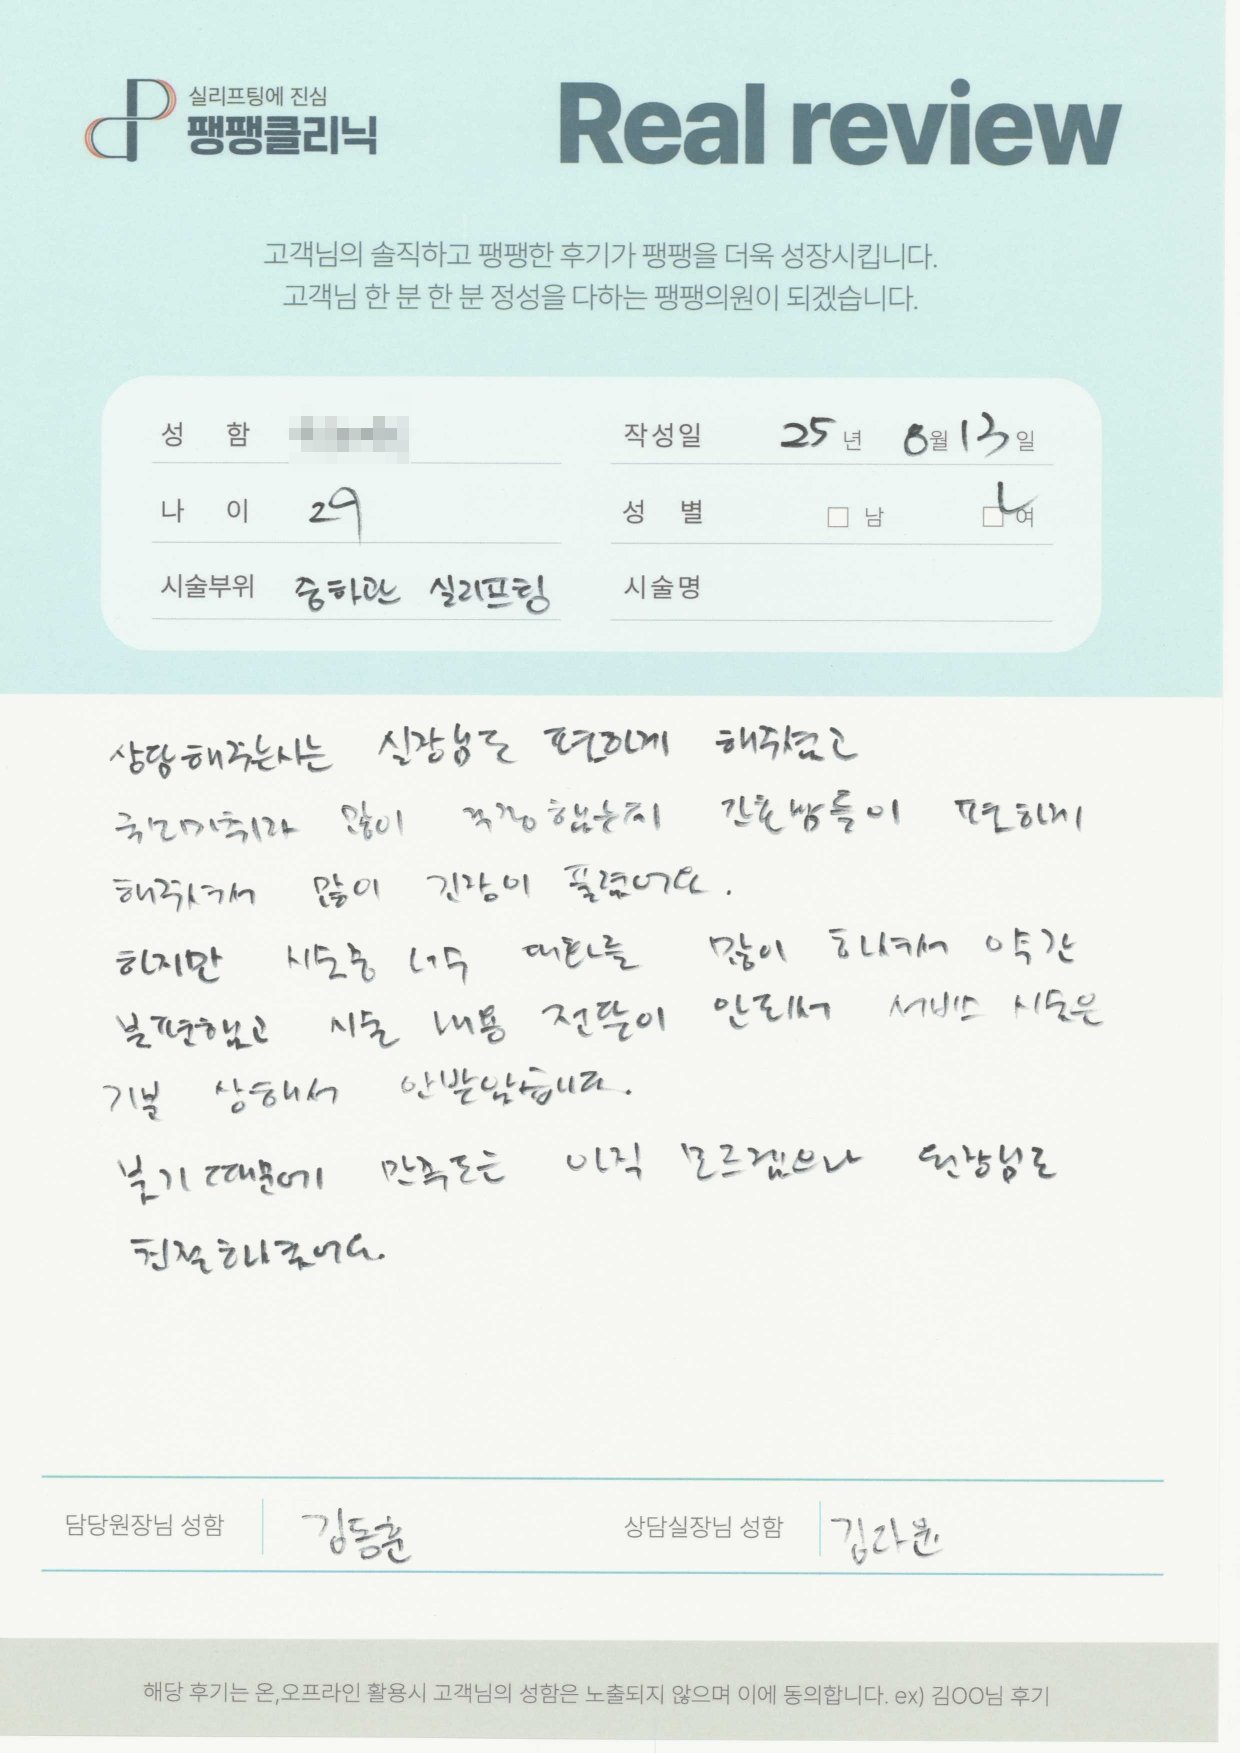 실리프팅에 진심
팽팽클리닉
Real review
고객님의 솔직하고 팽팽한 후기가 팽팽을 더욱 성장시킵니다.
고객님 한 분 한 분 정성을 다하는 팽팽의원이 되겠습니다.
성 함
작성일 25 년 8월 13 일
나 이 29
성 별 □ 남 □ 여
시술부위 중하관 실리프팅
시술명
상담해주는사는 실장님도 편하게 해주셨고
국소마취라 많이 걱정했는데 간호쌤들이 편하게
해주셔서 많이 긴장이 풀렸어요.
하지만 시술중 너무 대화를 많이 하셔서 약간
불편했고 시술 내용 전달이 안되서 서비스 시술은
기분 상해서 안받았습니다.
붓기 때문에 만족도는 아직 모르겠으나 원장님도
친절하셨어요.
담당원장님 성함 김동훈
상담실장님 성함 김라윤
해당 후기는 온,오프라인 활용시 고객님의 성함은 노출되지 않으며 이에 동의합니다. ex) 김OO님 후기